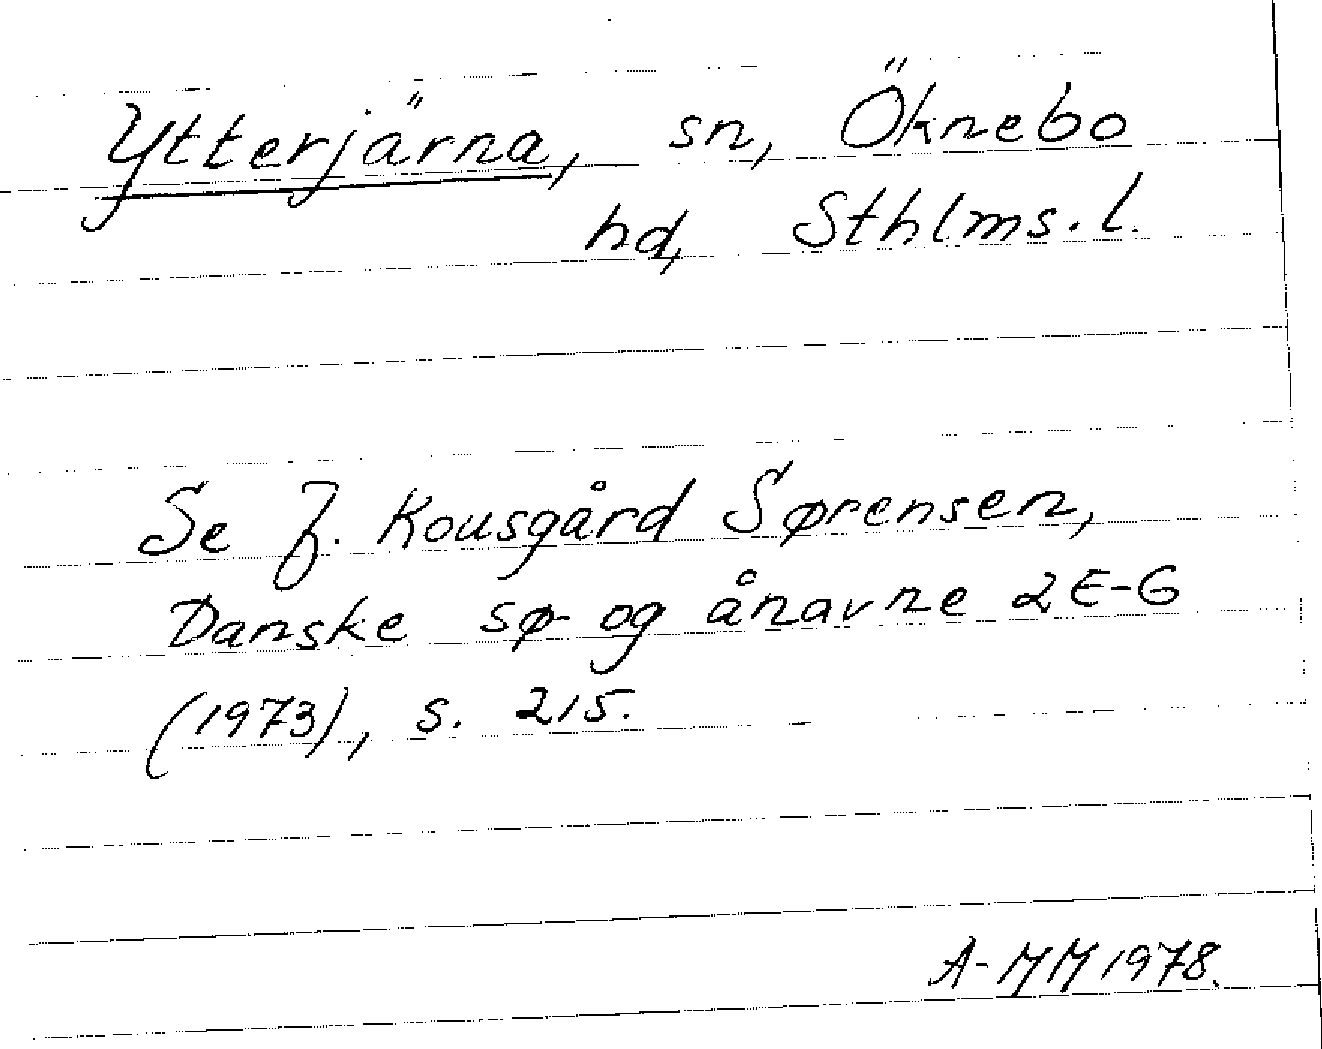 Ytterjärna, sn, Öknebo
hd, Sthlms. l.
Se J. Kousgård Sørensen,
Danske sø- og ånavne 2 E-G
(1973), s. 215.
A-MM 1978.